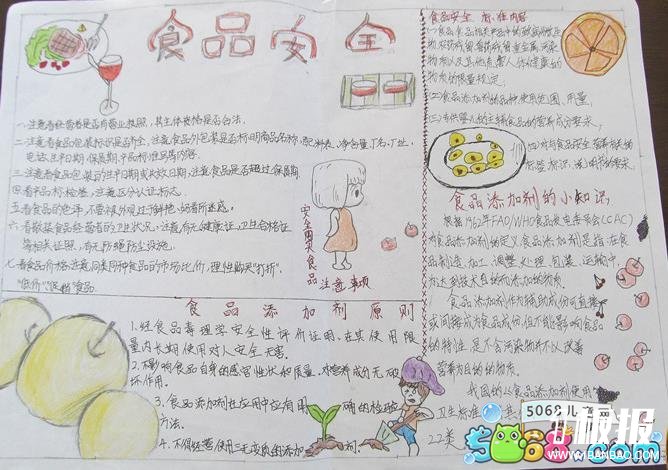 食品安全
一.注意看经营者是否有营业执照,其主体资格是否合法.
二.注意看食品包装标识是否齐全,注意食品外包装是否标明商品名称、配料表、净含量、厂名、厂址、
电话、生产日期、保质期、产品标准号等内容.
三.注意看食品包装的生产日期或失效日期,注意食品是否超过保质期.
四.看产品标签,注意区分认证标志.
五.看食品的色泽,不要被外观过于鲜艳、好看所迷惑.
六.看散装食品经营者的卫生状况,注意有无健康证,卫生合格证
等相关证照,有无防蝇防尘设施.
七.看食品价格,注意同类同种食品的市场比价,理性购买"打折"、
"低价""促销"食品
安全购买食品
注意事项
食品添加剂原则
1.经食品毒理学安全性评价证明,在其使用限
量内长期使用对人安全无害.
2.不影响食品自身的感官性状和质量,对营养成分无破
坏作用.
3.食品添加剂在应用中应有明确的检验
方法.
4.不得经营使用三无或变质的添加剂.
食品安全 标准内容
(1)食品、食品相关产品中的致病性微生
物、农药残留、兽药残留、重金属、污染
物质以及其他危害人体健康的
物质的限量规定;
(2)食品添加剂的品种、使用范围、用量;
(3)专供婴儿的主辅食品的营养成分要求;
(4)对与食品安全、营养有关的
标签、标识、说明书的要求.
食品添加剂的小知识
根据1962年FAO/WHO食品法典委员会(CAC)
对食品添加剂的定义,食品添加剂是指:在食
品制造、加工、调整、处理、包装、运输中
为达到技术目的而添加的物质.
食品添加剂作为辅助成份可直接
或间接成为食品成份,但不能影响食品
的特性,是不含污染物并不以改善
营养为目的的物质.
我国的《食品添加剂使用
卫生标准
22类
5068儿童网
板报
WWW.1BANBAO.COM